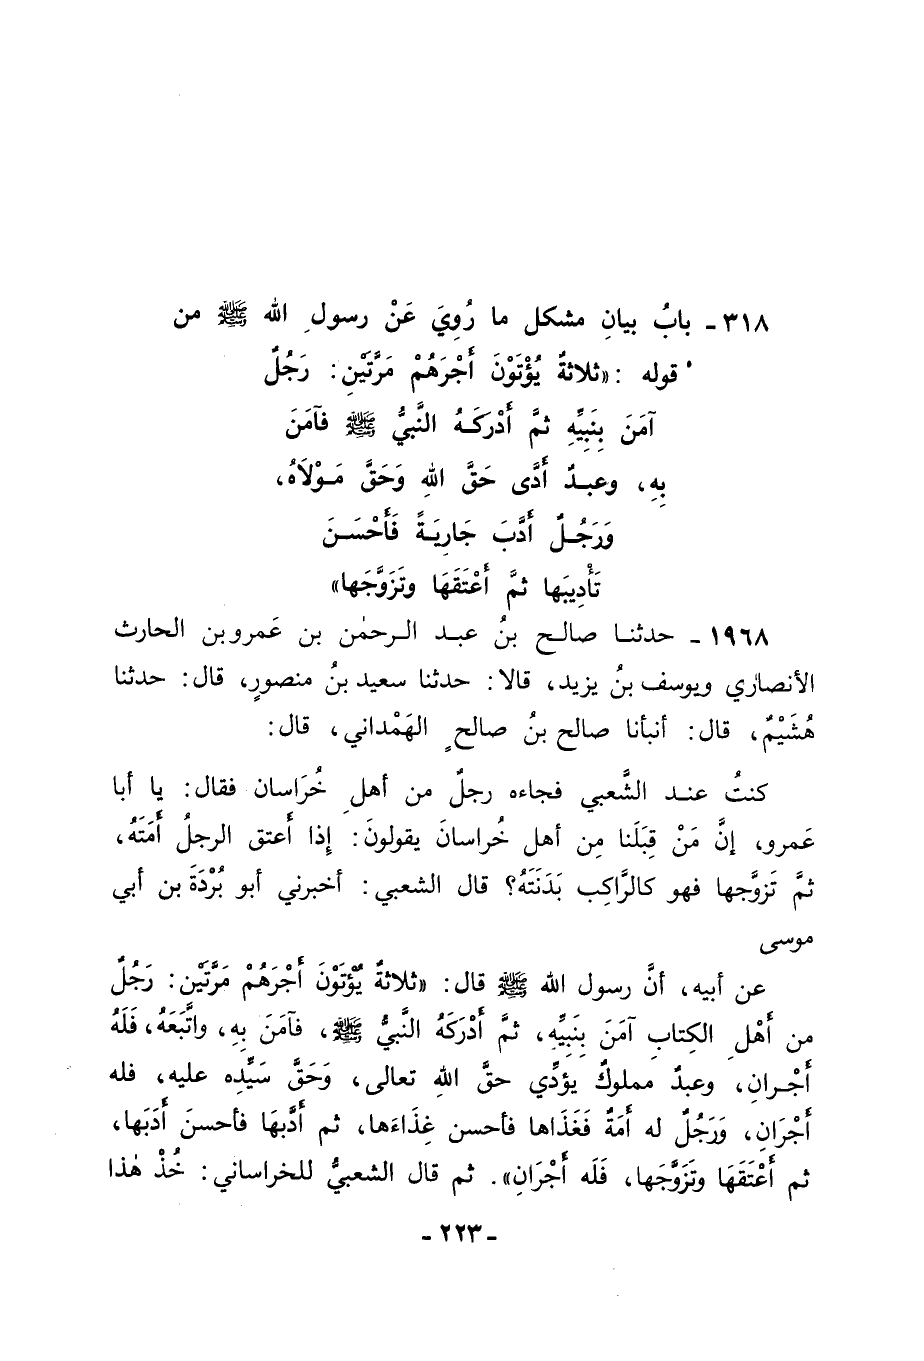 ٣١٨ - بابُ بيانِ مشكل ما رُوِيَ عَنْ رسولِ الله ﷺ من
قوله : «ثلاثةٌ يُؤْتَوْنَ أَجْرَهُمْ مَرَّتَيْنِ: رَجُلٌ
آمَنَ بِنَبِيِّهِ ثمَّ أَدْرَكَـهُ النَّبيُّ ﷺ فآمَنَ
بِهِ، وعبـدٌ أَدَّى حَقَّ اللهِ وَحَقَّ مَـوْلَاهُ،
وَرَجُـلٌ أَدَّبَ جَارِيَـةً فَأَحْسَـنَ
تَأْدِيبَها ثمَّ أَعْتَقَهَا وتَزَوَّجَها»
١٩٦٨ - حدثنـا صالـح بنُ عبـد الـرحمٰن بن عَمرو بن الحارث
الأنصاري ويوسف بنُ يزيد، قالا: حدثنا سعيد بنُ منصورٍ، قال: حدثنا
هُشَيْمٌ، قال: أنبأنا صالح بنُ صالحٍ الهَمْداني، قال:
كنتُ عنـد الشَّعبي فجاءه رجلٌ من أهلِ خُرَاسان فقال: يا أبا
عَمرو، إنَّ مَنْ قِبَلَنا مِن أهل خُراسانَ يقولونَ: إذا أَعتق الرجلُ أَمَتَهُ،
ثمَّ تَزوَّجها فهو كالرَّاكِب بَدَنَتَهُ؟ قال الشعبي: أخبرني أبو بُرْدَةَ بن أبي
موسى
عن أبيه، أنَّ رسول الله ﷺ قال: «ثلاثةٌ يُؤْتَوْنَ أَجْرَهُمْ مَرَّتَيْن: رَجُلٌ
من أَهْلِ الكِتابِ آمَنَ بِنَبِيِّهِ، ثمَّ أَدْرَكَهُ النَّبيُّ ﷺ، فآمَنَ بِهِ، واتَّبَعَهُ، فَلَهُ
أَجْـرانِ، وعبدٌ مملوكٌ يؤدِّي حقَّ اللهِ تعالى، وَحَقَّ سَيِّدِه عليه، فله
أَجْرَانِ، وَرَجُلٌ له أَمَةٌ فَغَذَاها فأحسن غِذاءَها، ثم أدَّبهَا فأحسنَ أَدَبَها،
ثم أَعْتَقَهَا وتَزَوَّجَها، فَلَه أَجْرَانِ». ثم قال الشعبيُّ للخراساني: خُذْ هٰذا
- ٢٢٣ -